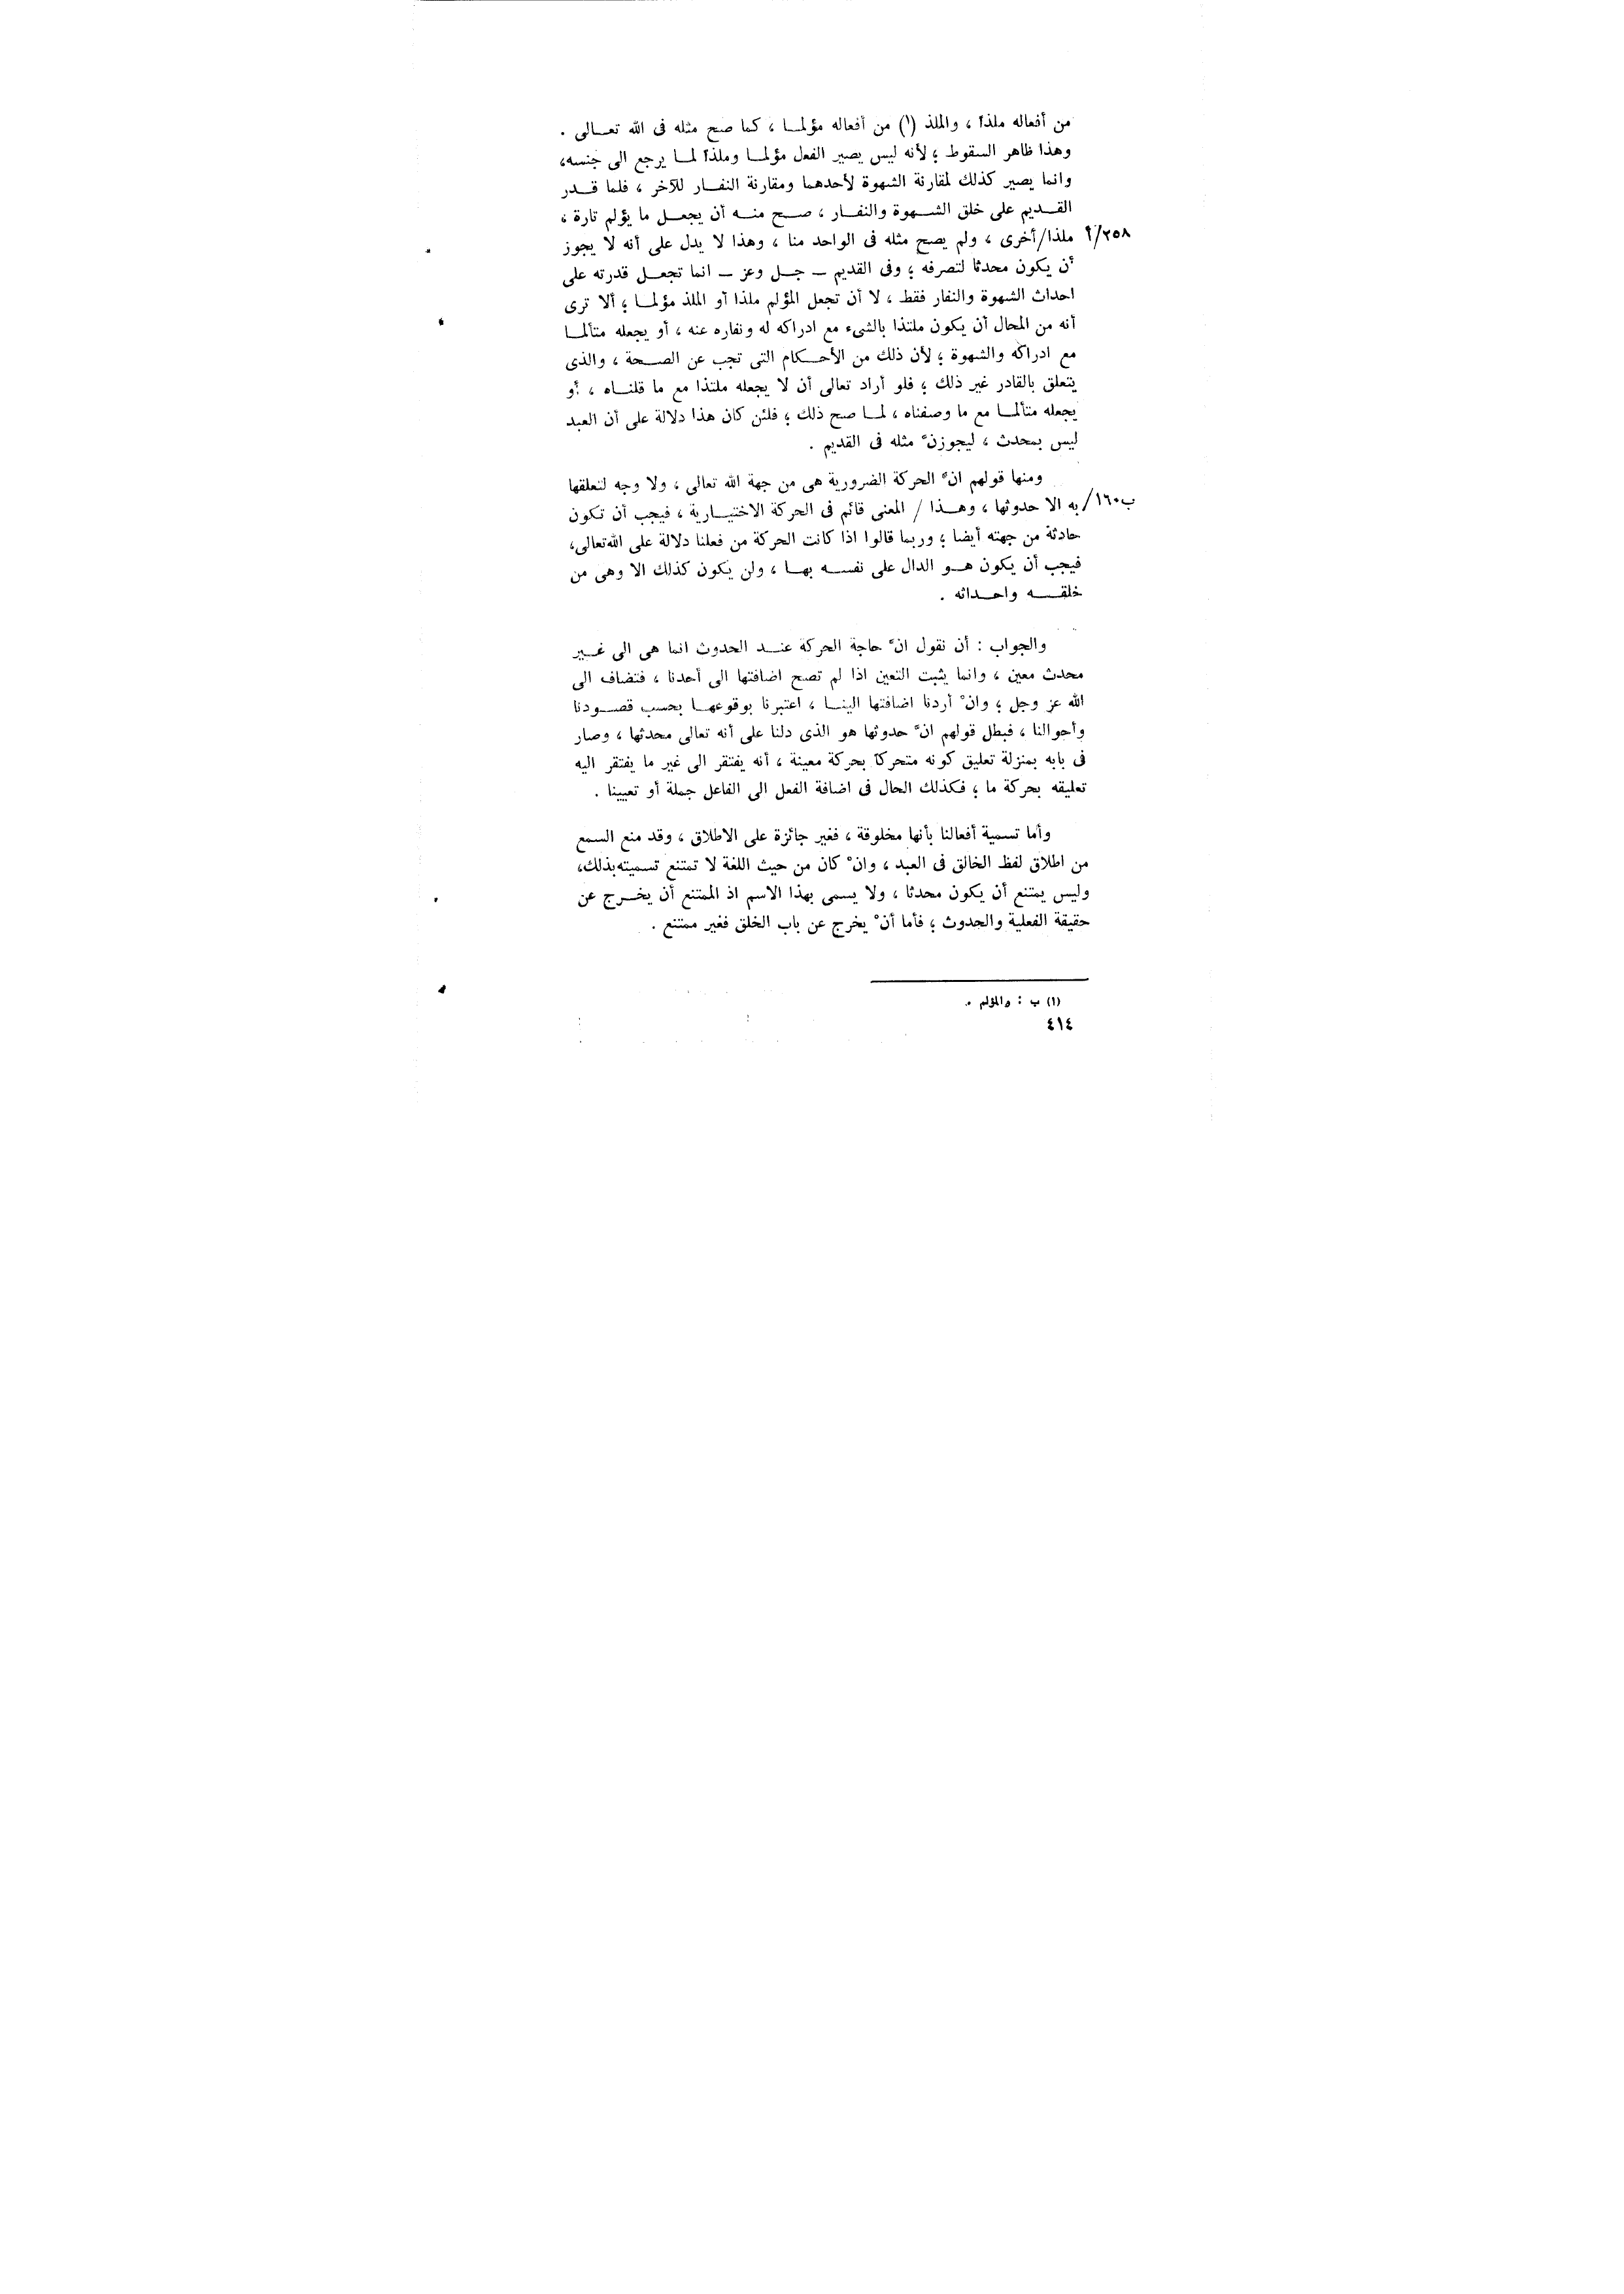 من أفعاله ملذاً ، والملذ (١) من أفعاله مؤلمـا ، كما صح مثله فى الله تعـالى .
وهذا ظاهر السقوط ؛ لأنه ليس يصير الفعل مؤلمـا وملذاً لمـا يرجع الى جنسه،
وانما يصير كذلك لمقارنة الشهوة لأحدهما ومقارنة النفـار للآخر ، فلما قـدر
القـديم على خلق الشـهوة والنفـار ، صـح منـه أن يجعـل ما يؤلم تارة ،
٢٥٨/أ ملذا/أخرى ، ولم يصح مثله فى الواحد منا ، وهذا لا يدل على أنه لا يجوز
أن يكون محدثا لتصرفه ؛ وفى القديم ـ جـل وعز ـ انما تجعـل قدرته على
احداث الشهوة والنفار فقط ، لا أن تجعل المؤلم ملذا أو الملذ مؤلمـا ؛ ألا ترى
أنه من المحال أن يكون ملتذا بالشىء مع ادراكه له ونفاره عنه ، أو يجعله متألمـا
مع ادراكه والشهوة ؛ لأن ذلك من الأحـكام التى تجب عن الصـحة ، والذى
يتعلق بالقادر غير ذلك ؛ فلو أراد تعالى أن لا يجعله ملتذا مع ما قلنـاه ، أو
يجعله متألمـا مع ما وصفناه ، لمـا صح ذلك ؛ فلئن كان هذا دلالة على أن العبد
ليس بمحدث ، ليجوزنّ مثله فى القديم .
ومنها قولهم انّ الحركة الضرورية هى من جهة الله تعالى ، ولا وجه لتعلقها
١٦٠ب/ به الا حدوثها ، وهـذا / المعنى قائم فى الحركة الاختيـارية ، فيجب أن تكون
حادثة من جهته أيضا ؛ وربما قالوا اذا كانت الحركة من فعلنا دلالة على الله تعالى،
فيجب أن يكون هـو الدال على نفسـه بهـا ، ولن يكون كذلك الا وهى من
خلقـه واحـداثه .
والجواب : أن نقول انّ حاجة الحركة عنـد الحدوث انما هى الى غـير
محدث معين ، وانما يثبت التعين اذا لم تصح اضافتها الى أحدنا ، فتضاف الى
الله عز وجل ؛ وانْ أردنا اضافتها الينـا ، اعتبرنا بوقوعهـا بحسب قصـودنا
وأحوالنا ، فبطل قولهم انّ حدوثها هو الذى دلنا على أنه تعالى محدثها ، وصار
فى بابه بمنزلة تعليق كونه متحركاً بحركة معينة ، أنه يفتقر الى غير ما يفتقر اليه
تعليقه بحركة ما ؛ فكذلك الحال فى اضافة الفعل الى الفاعل جملة أو تعيينا .
وأما تسمية أفعالنا بأنها مخلوقة ، فغير جائزة على الاطلاق ، وقد منع السمع
من اطلاق لفظ الخالق فى العبد ، وانْ كان من حيث اللغة لا تمتنع تسميته بذلك،
وليس يمتنع أن يكون محدثا ، ولا يسمى بهذا الاسم اذ الممتنع أن يخـرج عن
حقيقة الفعلية والحدوث ؛ فأما أنْ يخرج عن باب الخلق فغير ممتنع .
(١) ب : والمؤلم .
٤١٤